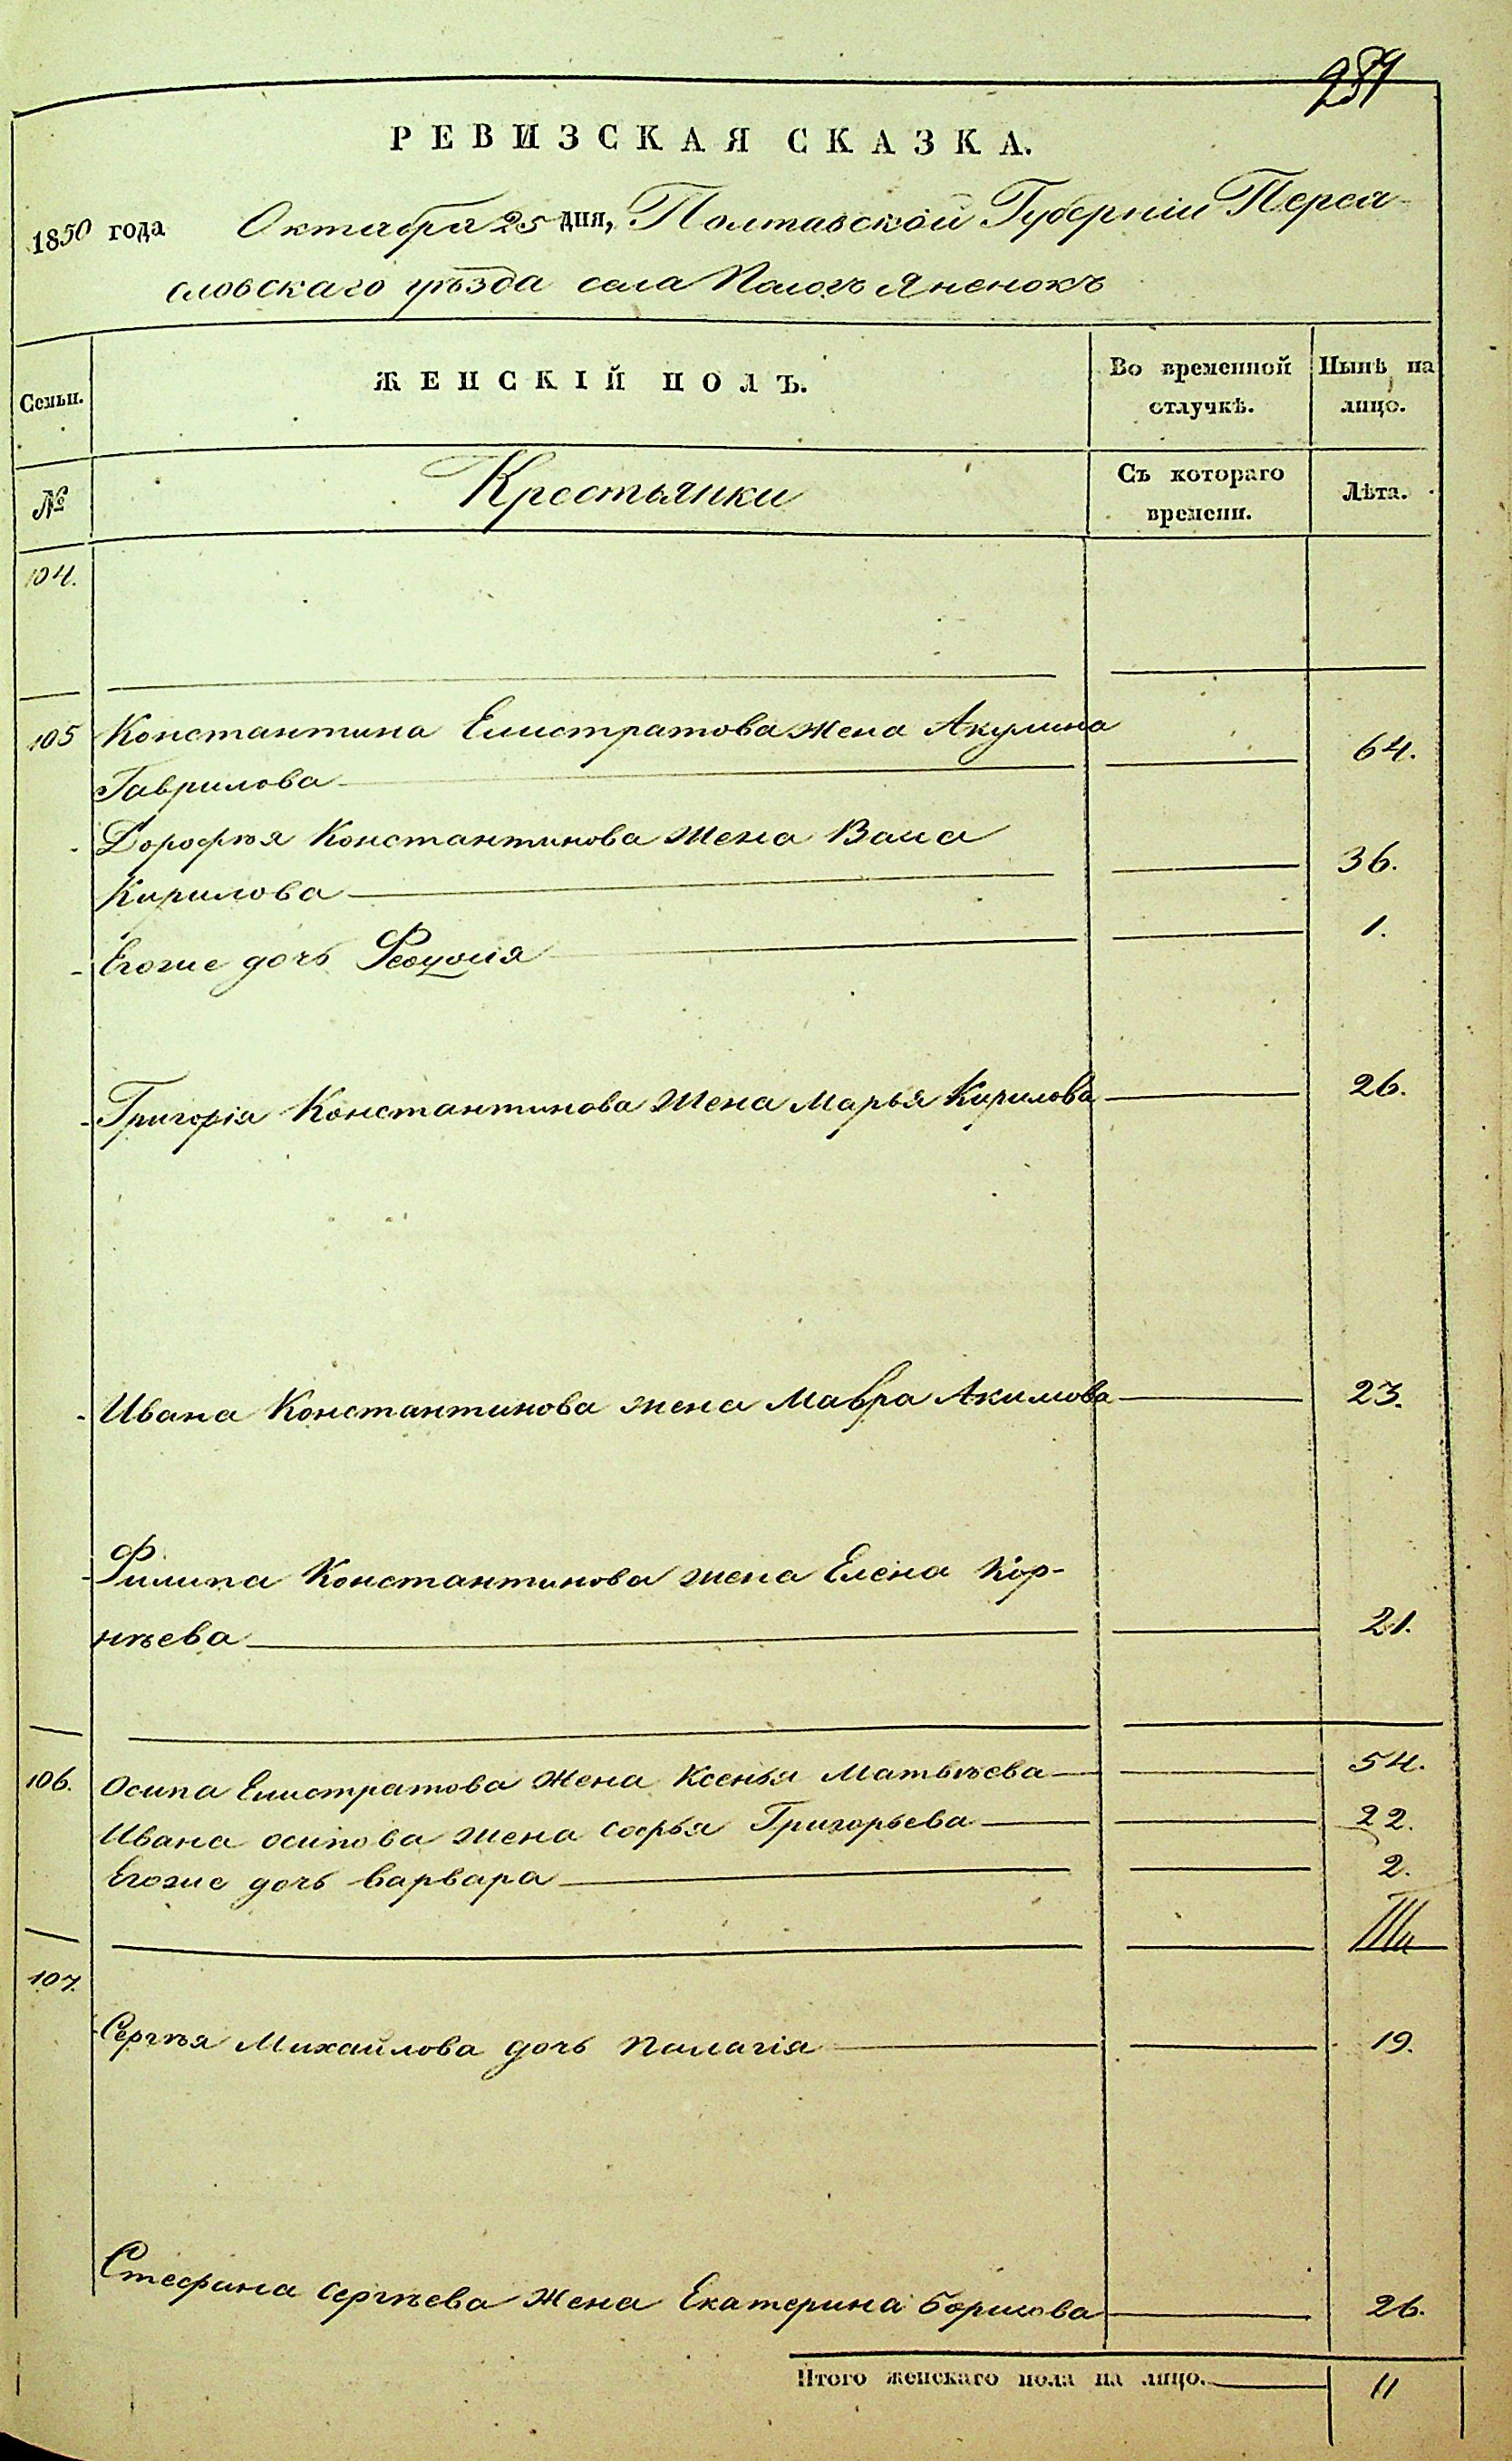 289
РЕВИЗСКАЯ СКАЗКА.
1850 года Октября 25 дня, Полтавской Губерніи Перея-
словскаго уѣзда села Пологъ Яненокъ
Семьи.
ЖЕНСКІЙ ПОЛЪ.
Во временной отлучкѣ.
Нынѣ на лицо.
№
Крестьянки
Съ котораго времени.
Лѣта.
104.
105 Константина Елистратова жена Акулина
Гаврилова 64.
Дорофѣя Константинова жена Васа
Кирилова 36.
Егоже дочь 1.
Григорія Константинова жена Марья Кирилова 26.
Ивана Константинова жена Мавра Акимова 23.
Филипа Константинова жена Елена Кор-
нѣева 21.
106. Осипа Елистратова жена Ксенья Матвѣева 54.
Ивана осипова жена софья Григорьева 22.
Егоже дочь варвара 2.
107.
Сергѣя Михайлова дочь палагія 19.
Стефана сергѣева жена Екатерина борисова 26.
Итого женскаго пола на лицо. 11